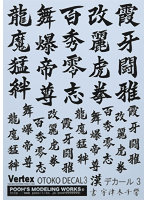 霞牙闘雅
改麗虎拳
百秀零志
舞爆帝尊
龍魔猛絆
霞牙闘雅
改麗虎拳
百秀零志
舞爆帝尊
龍魔猛絆
Vertex OTOKO DECAL3
POOH'S MODELING WORKS
漢デカール 3